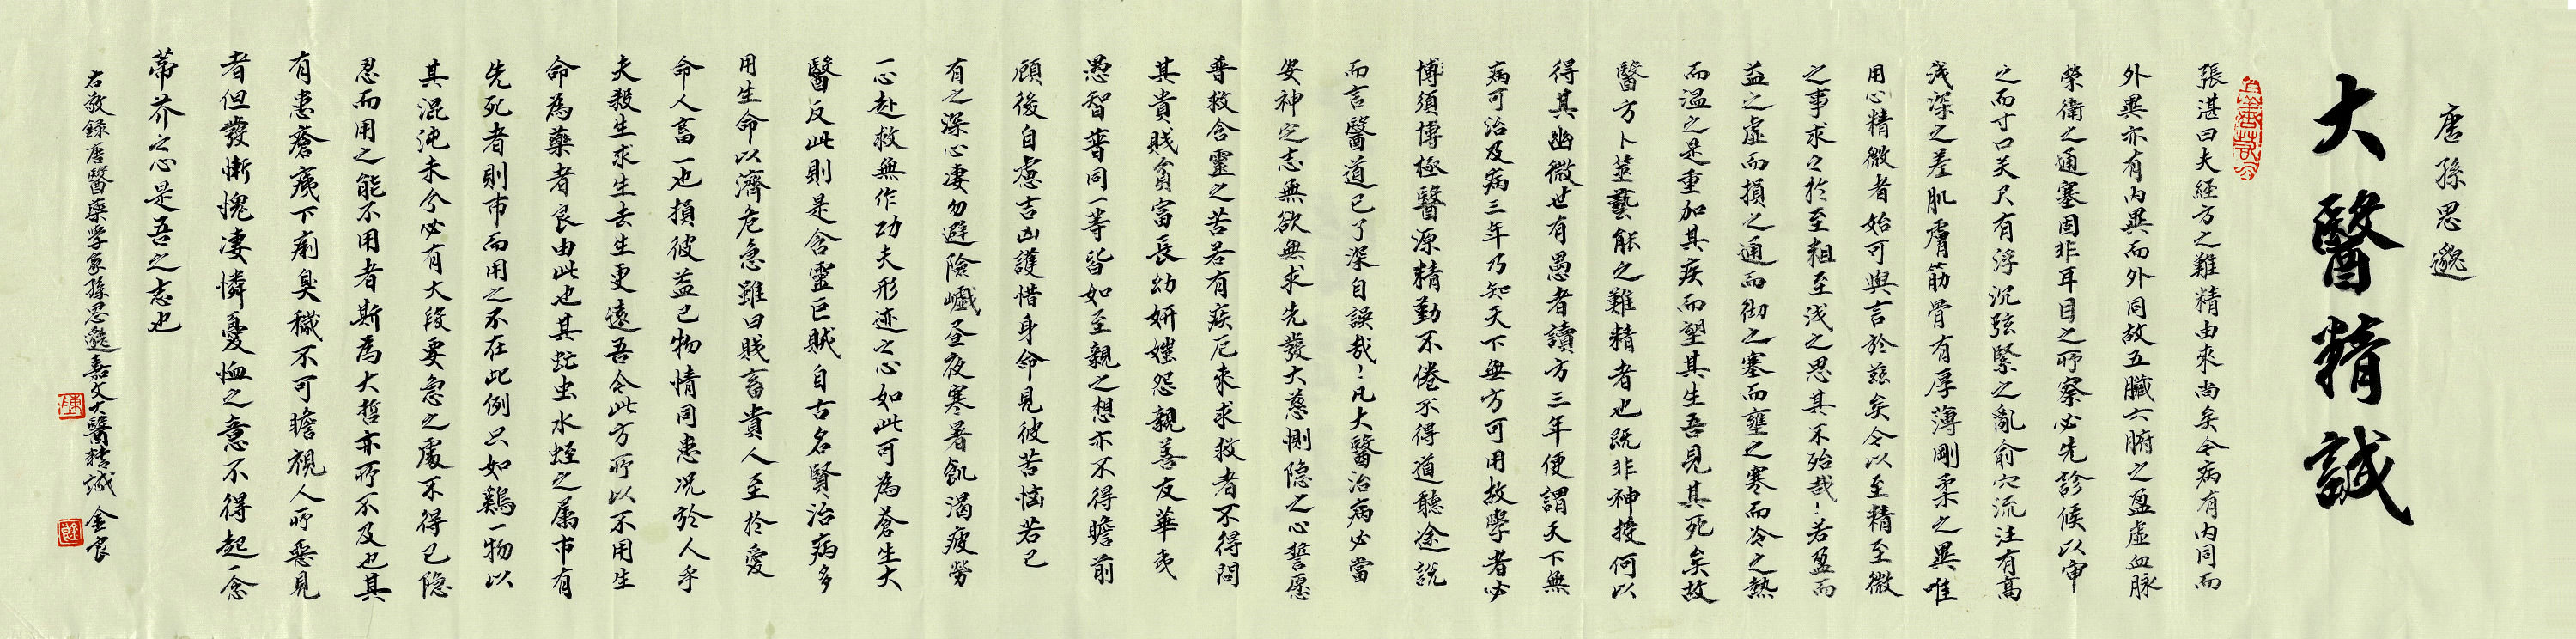 唐孫思邈
大醫精誠
張湛曰夫經方之難精由來尚矣今病有内同而
外異亦有内異而外同故五臟六腑之盈虛血脉
榮衛之通塞固非耳目之所察必先診候以审
之而寸口关尺有浮沉弦緊之亂俞穴流注有高
浅深之差肌膚筋骨有厚薄剛柔之異唯
用心精微者始可與言於兹矣今以至精至微
之事求之於至粗至浅之思其不殆哉！若盈而
益之虛而損之通而彻之塞而壅之寒而冷之熱
而温之是重加其疾而望其生吾見其死矣故
醫方卜筮藝能之難精者也既非神授何以
得其幽微世有愚者讀方三年便謂天下無
病可治及病三年乃知天下無方可用故學者必
博須博極醫源精勤不倦不得道聽途説
而言醫道已了深自誤哉！凡大醫治病必當
安神定志無欲無求先發大慈惻隐之心誓愿
普救含靈之苦若有疾厄來求救者不得問
其貴賤貧富長幼妍媸怨親善友華夷
愚智普同一等皆如至親之想亦不得瞻前
顧後自慮吉凶護惜身命見彼苦恼若己
有之深心凄勿避險巇昼夜寒暑飢渴疲勞
一心赴救無作功夫形迹之心如此可為蒼生大
醫反此則是含靈巨賊自古名賢治病多
用生命以濟危急雖曰賤畜貴人至於愛
命人畜一也損彼益己物情同患况於人乎
夫殺生求生去生更遠吾今此方所以不用生
命為藥者良由此也其虻虫水蛭之属市有
先死者則市而用之不在此例只如鷄一物以
其混沌未分必有大段要急之處不得已隐
忍而用之能不用者斯為大哲亦所不及也其
有患瘡痍下痢臭穢不可瞻視人所惡見
者但發慚愧凄憐憂恤之意不得起一念
蒂芥之心是吾之志也
右敬録唐醫藥學家孫思邈嘉文大醫精誠 金良